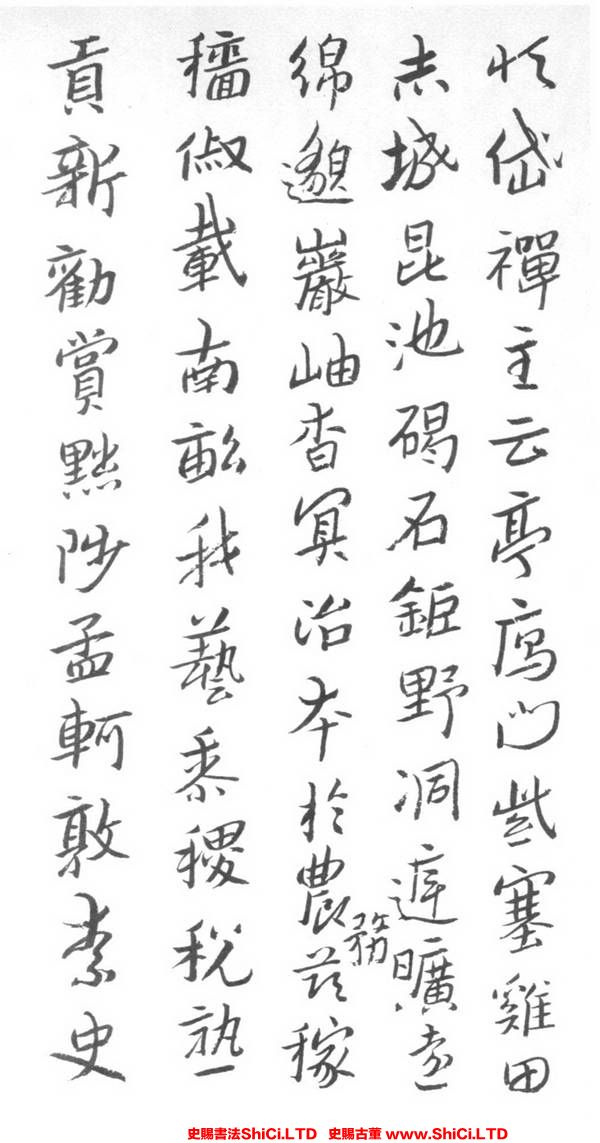 恒岱禪主云亭鴈門紫塞雞田
赤城昆池碣石鉅野洞遲曠遠
綿邈巖岫杳冥治本於農務茲稼
穡俶載南畝我藝黍稷稅熟
貢新勸賞黜陟孟軻敦素史
史賜書法ShiCi.LTD 史賜古董 www.ShiCi.LTD